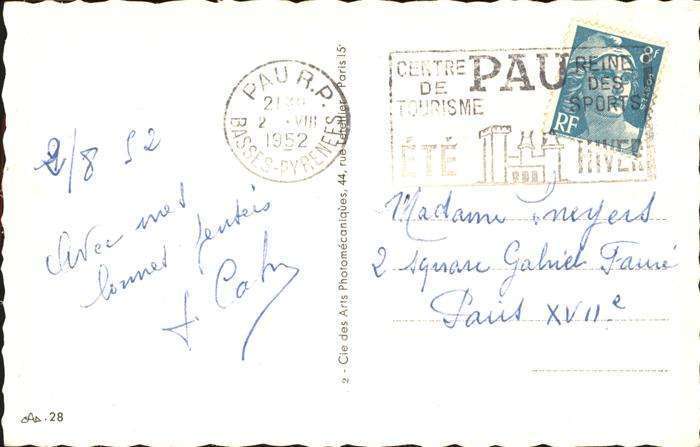 2/8 52
Avec mes
bonnes pensées
PAU R.P.
2 -VIII
1952
BASSES-PYRENEES
2 - Cie des Arts Photomécaniques, 44, rue Letellier - Paris 15e
CENTRE
DE
TOURISME
PAU
REINE
DES
SPORTS
ÉTÉ
HIVER
8F
RF
Madame
2 square Gabriel Fauré
Paris XVIIe
28